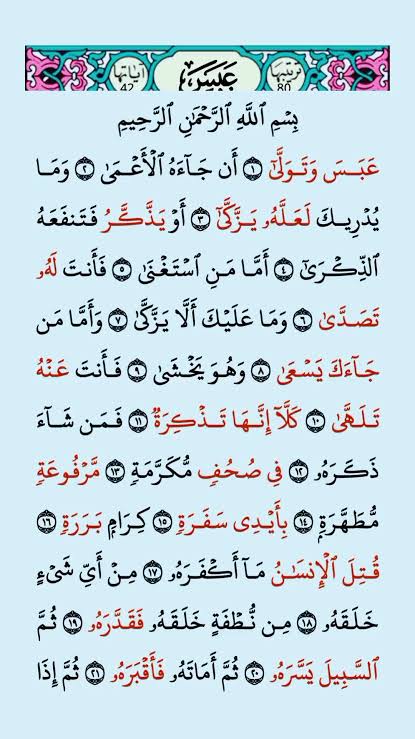 ترتيبها 80 عبس آياتها 42
بِسْمِ ٱللَّهِ ٱلرَّحْمَٰنِ ٱلرَّحِيمِ
عَبَسَ وَتَوَلَّىٰٓ ١ أَن جَآءَهُ ٱلْأَعْمَىٰ ٢ وَمَا
يُدْرِيكَ لَعَلَّهُۥ يَزَّكَّىٰٓ ٣ أَوْ يَذَّكَّرُ فَتَنفَعَهُ
ٱلذِّكْرَىٰٓ ٤ أَمَّا مَنِ ٱسْتَغْنَىٰ ٥ فَأَنتَ لَهُۥ
تَصَدَّىٰ ٦ وَمَا عَلَيْكَ أَلَّا يَزَّكَّىٰ ٧ وَأَمَّا مَن
جَآءَكَ يَسْعَىٰ ٨ وَهُوَ يَخْشَىٰ ٩ فَأَنتَ عَنْهُ
تَلَهَّىٰ ١٠ كَلَّآ إِنَّهَا تَذْكِرَةٌ ١١ فَمَن شَآءَ
ذَكَرَهُۥ ١٢ فِى صُحُفٍ مُّكَرَّمَةٍ ١٣ مَّرْفُوعَةٍ
مُّطَهَّرَةٍۭ ١٤ بِأَيْدِى سَفَرَةٍ ١٥ كِرَامٍۭ بَرَرَةٍ ١٦
قُتِلَ ٱلْإِنسَٰنُ مَآ أَكْفَرَهُۥ ١٧ مِنْ أَىِّ شَىْءٍ
خَلَقَهُۥ ١٨ مِن نُّطْفَةٍ خَلَقَهُۥ فَقَدَّرَهُۥ ١٩ ثُمَّ
ٱلسَّبِيلَ يَسَّرَهُۥ ٢٠ ثُمَّ أَمَاتَهُۥ فَأَقْبَرَهُۥ ٢١ ثُمَّ إِذَا